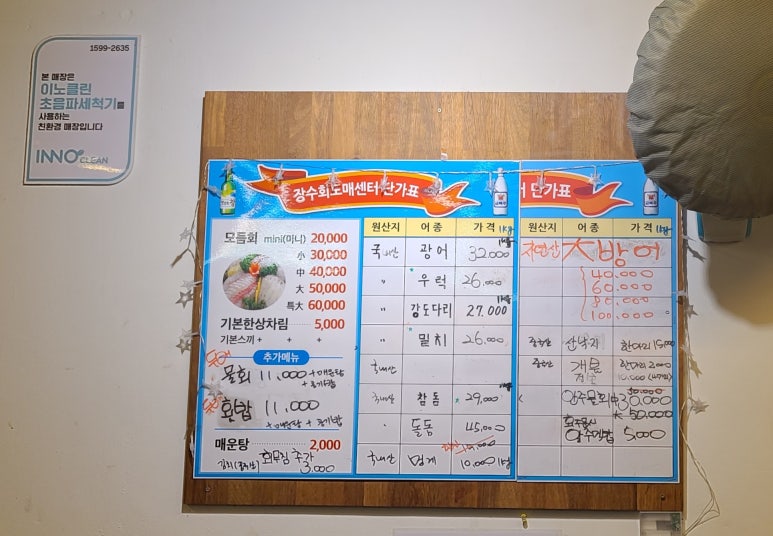 1599-2635
본 매장은
이노클린
초음파세척기를
사용하는
친환경 매장입니다
INNO CLEAN
장수회도매센터 단가표
모듬회 mini(미니) 20,000
小 30,000
中 40,000
大 50,000
特大 60,000
기본한상차림 5,000
기본스끼 + + +
추가메뉴
물회 11,000 +매운탕
+공기밥
회밥 11,000
+매운탕 + 공기밥
매운탕 2,000
회무침 추가
3,000
원산지 어종 가격 1kg
국내산 광어 32,000 1kg
" 우럭 26,000
" 강도다리 27,000 1kg
" 밀치 26,000
국내산
국내산 참돔 29,000
" 돌돔 45,000
국내산 멍게 10,000
어 단가표
원산지 어종 가격 1kg
자연산 大방어
40,000
60,000
80,000
100,000
산낙지 한마리 15,000
개불 한마리 2,000
10,000
물회 中 30,000
大 50,000
5,000